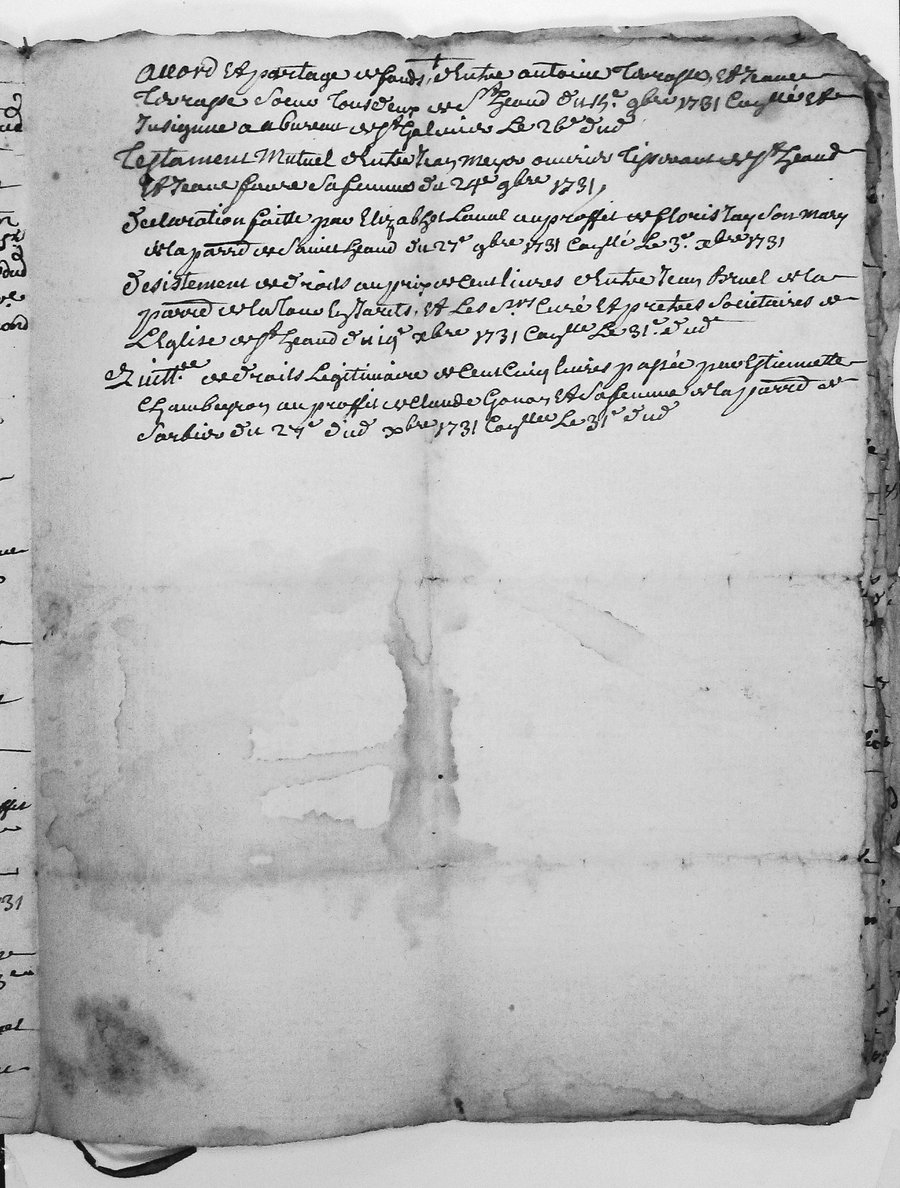 accord Et partage de fonds, d'Entre antoine Terrasse, Et Jeanne
Terrasse Soeur Tous deux de St heand du 14e 9bre 1731 Conllé Et
Insignué au bureau de St galmier Le 26e dud
Testament Mutuel d'Entre Jean Meyer ouvrier Tisserant de St heand
Et Jeane faure Sa femme du 24e 9bre 1731,
declaration faitte par Elizabhet Laval au proffit de floris Jay Son Mary
de la parrd de Saint heand du 27e 9bre 1731 Conllé Le 3e xbre 1731
desistement de droits au prix de Cent livres d'Entre Jean Bruel de la
parrd de la Tour En Jarets, Et Les Srs Curé Et pretres Societaires de
L'Eglise de St heand du 19e xbre 1731 Conllé Le 31e dud
Quittce de droits Legitimaire de Cent Cinq livres passée par Estiennette
Chambeyron au proffit de Claude Gonon Et Sa femme de la parrd de
Sorbier du 27e dud xbre 1731 Conllé Le 31e dud